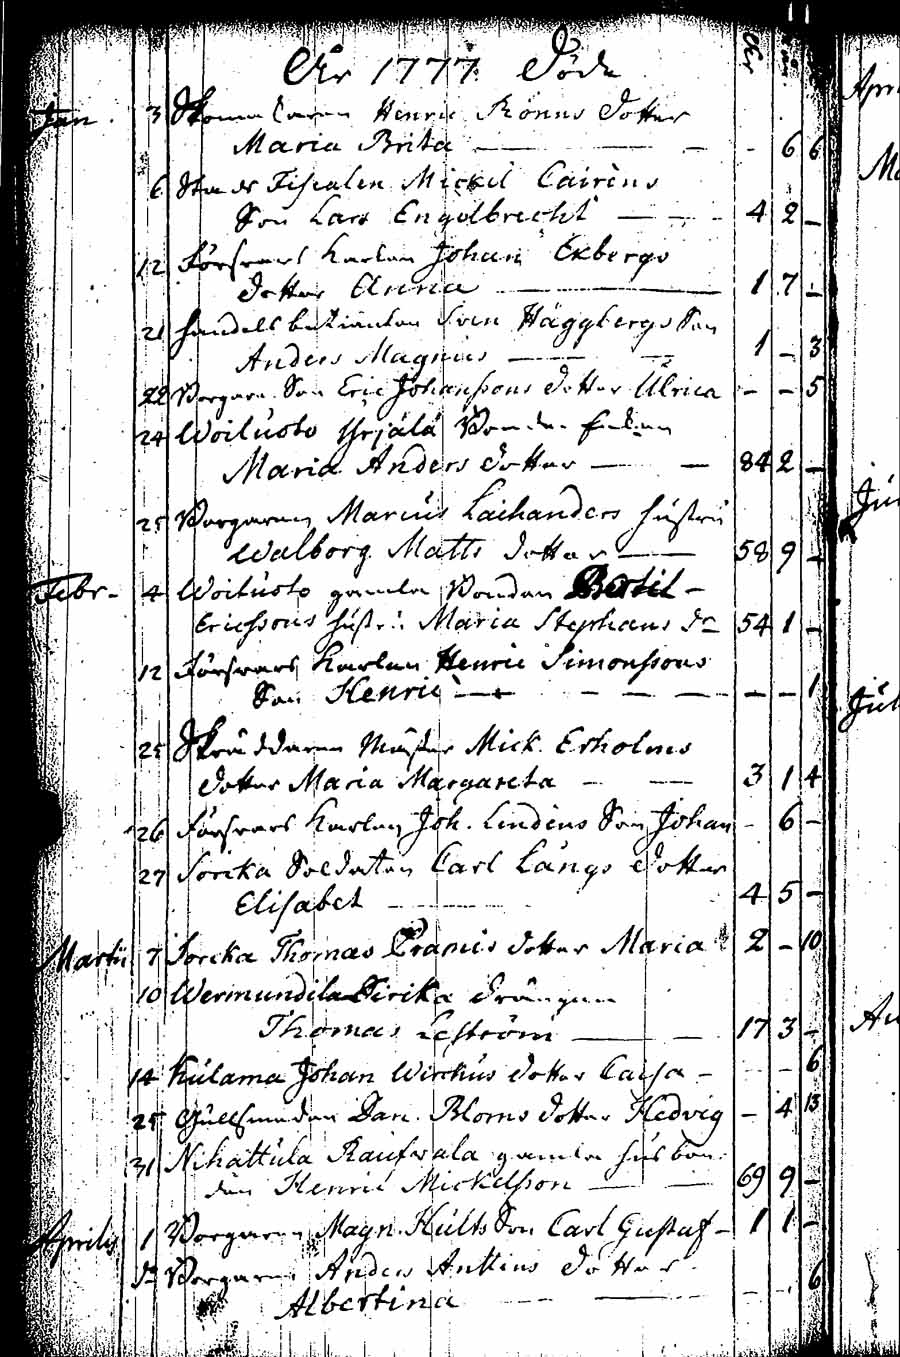 År 1777. Döde
Jan. 3 Skomakaren Henric Rönns Dotter
Maria Brita — — — 6 6
6 Stads Fiscalen Mickel Cairéns
Son Lars Engelbrecht — — 4 2 —
12 Försvars Karlen Johan Ekbergs
dotter Anna — 1 7 —
21 Handels betjänten Sven Häggbergs Son
Anders Magnus — — 1 — 3
22 Borgaren Son Eric Johanssons dotter Ulrica — — 5
24 Woiluoto Bonden Enkan
Maria Anders dotter — — 84 2 —
25 Borgaren Marcus Laihanders hustru
Walborg Matts dotter — — 58 9 —
Febr. 4 Woiluoto gamla Bonden Bertil
Ericssons hustru Maria Stephans dr 54 1 —
12 Försvars Karlen Henric Simonssons
Son Henric — — — — — — 1
25 Skräddaren Mäster Mick. Erholms
dotter Maria Margareta — — 3 1 4
26 Försvars Karlen Joh. Lindens Son Johan — 6 —
27 Sorcka Soldaten Carl Långs dotter
Elisabet — 4 5 —
Martii 7 Sorcka Thomas dotter Maria 2 — 10
10 Wermundila drängen
Thomas Leström — — 17 3 —
14 Kulama Johan Wirckus dotter Caisa — 6
25 Gullsmeden Dan. Bloms dotter Hedvig — 4 13
31 Nihattula gamla husbon
den Henric Mickelsson — — 69 9 —
Aprilis 1 Borgaren Magn. Hults Son Carl Gustaf — 1 1 —
do Borgaren Anders Anttins dotter
Albertina — — — 6